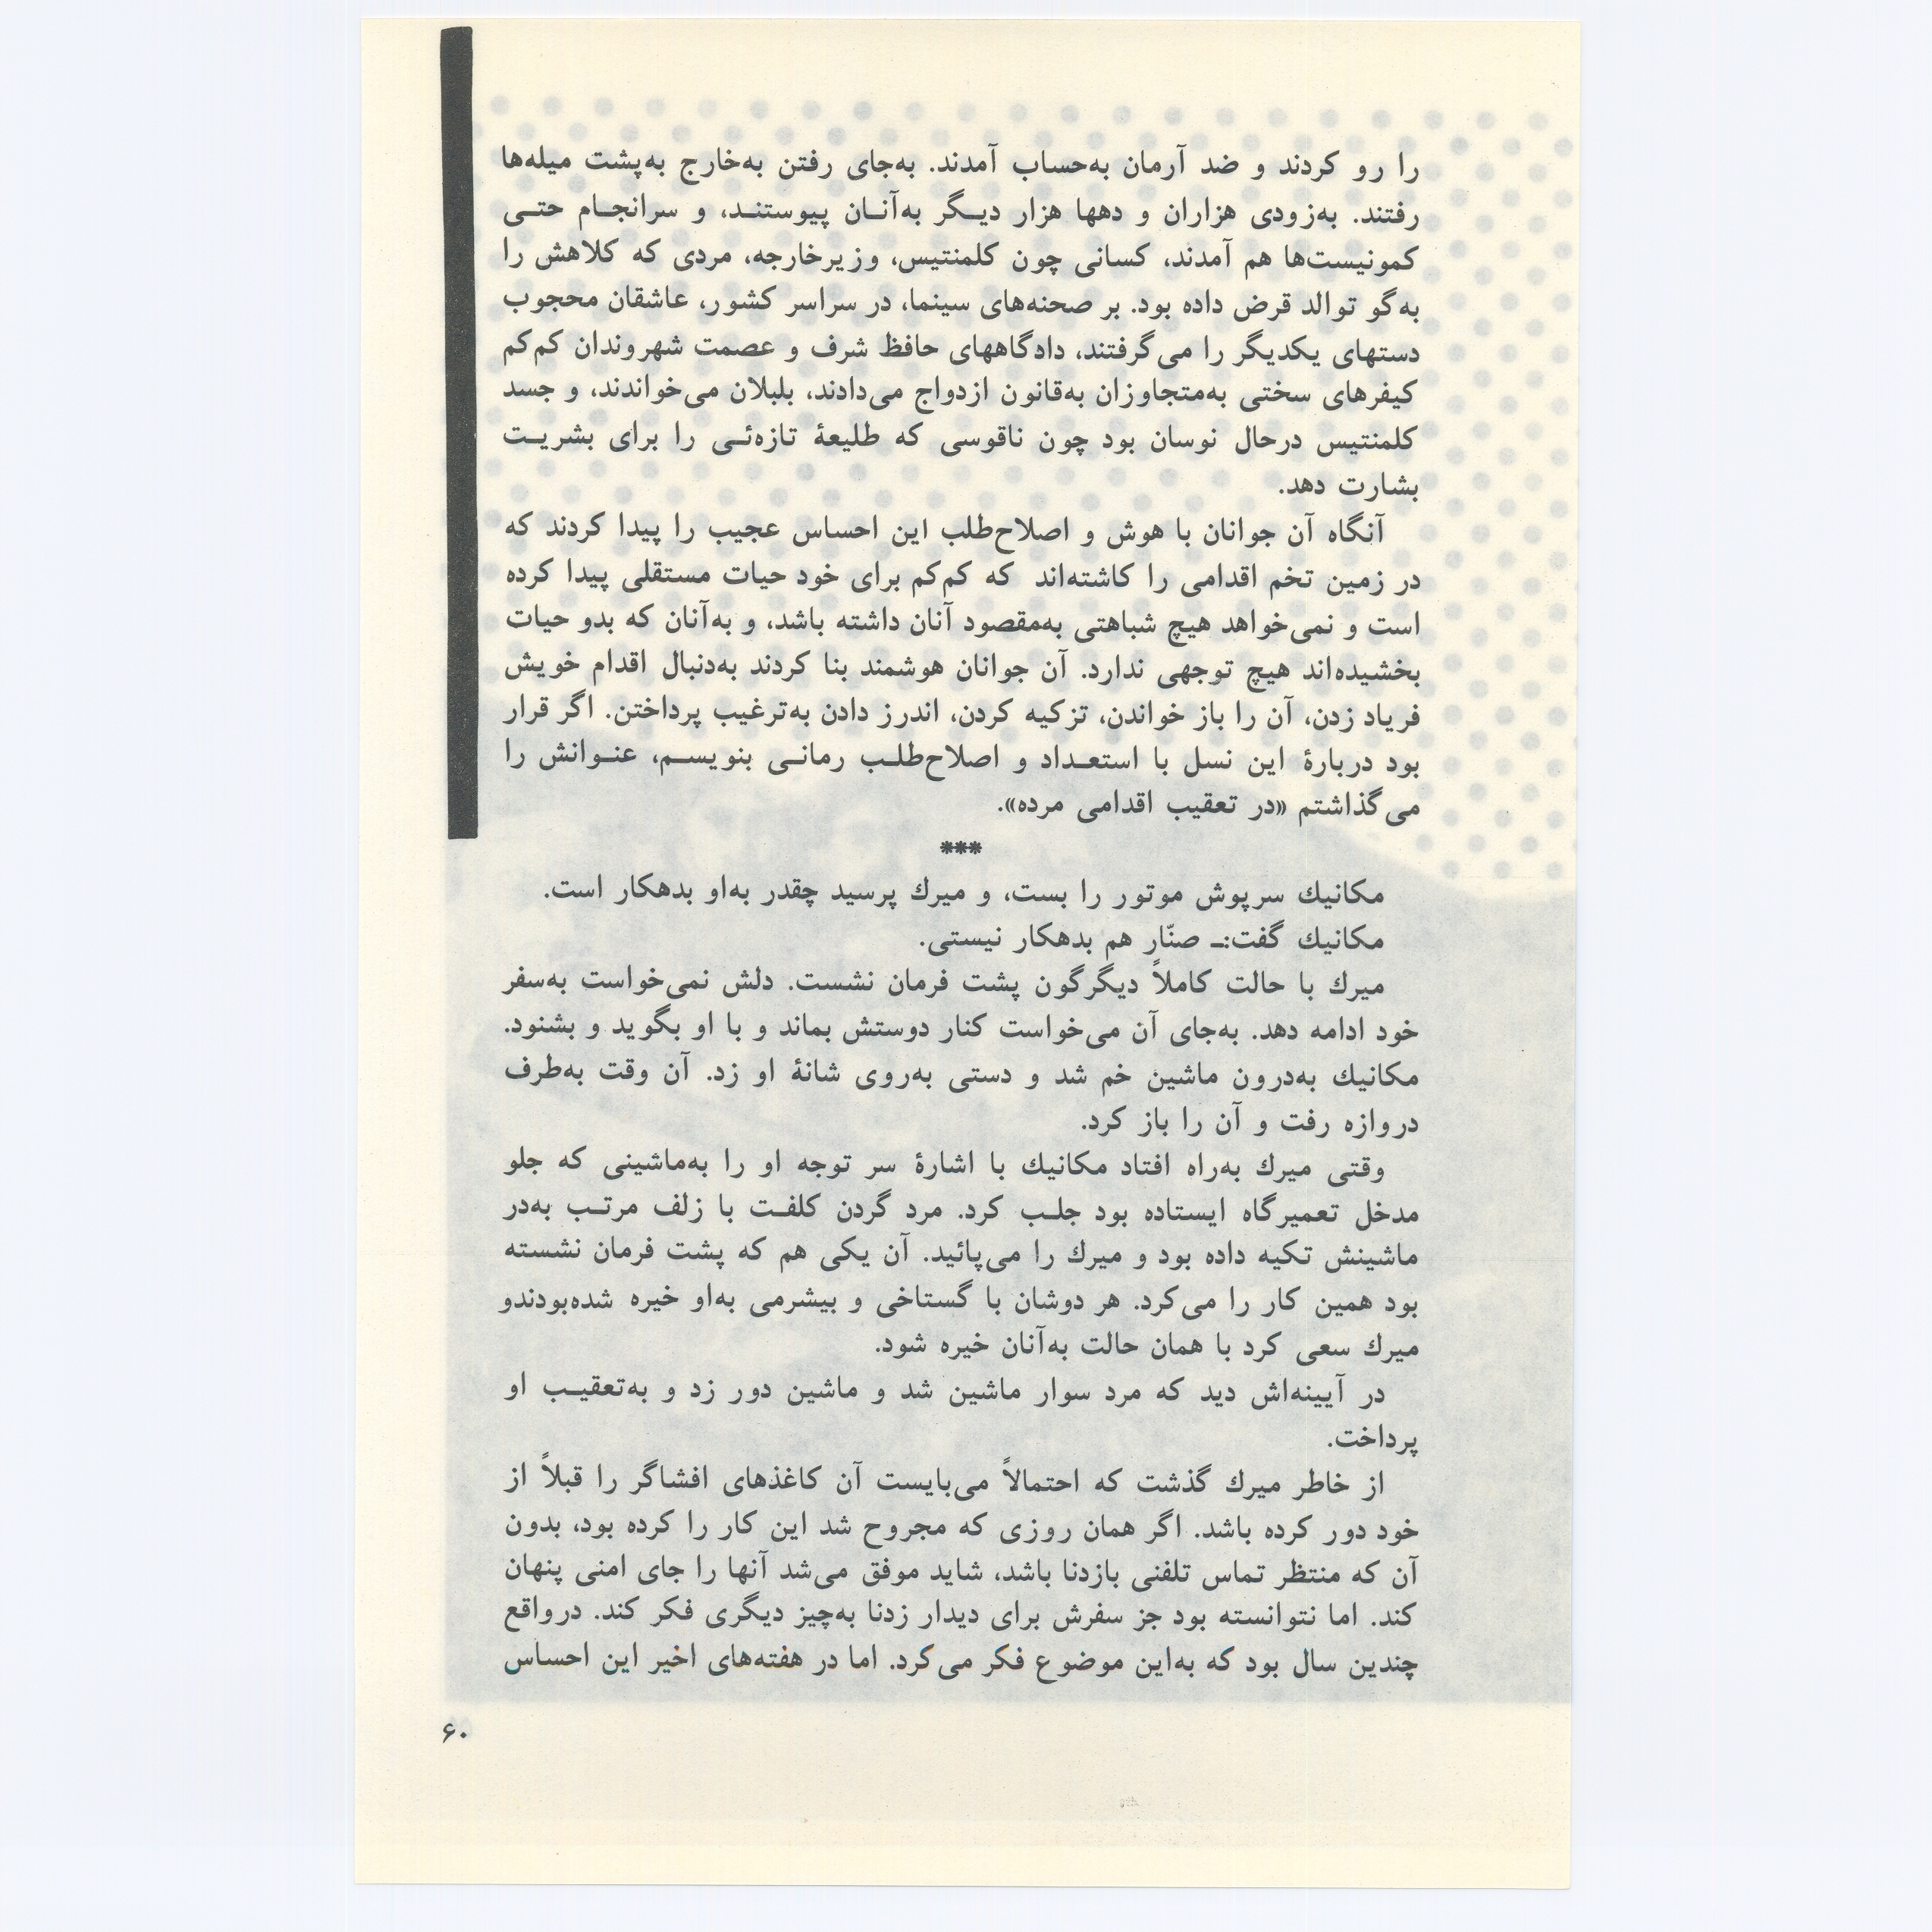 را رو کردند و ضد آرمان به‌حساب آمدند. به‌جای رفتن به‌خارج به‌پشت میله‌ها
رفتند. به‌زودی هزاران و دهها هزار دیـگر به‌آنـان پیوستنـد، و سرانجـام حتـی
کمونیست‌ها هم آمدند، کسانی چون کلمنتیس، وزیرخارجه، مردی که کلاهش را
به‌گو توالد قرض داده بود. بر صحنه‌های سینما، در سراسر کشور، عاشقان محجوب
دستهای یکدیگر را می‌گرفتند، دادگاههای حافظ شرف و عصمت شهروندان کم‌کم
کیفرهای سختی به‌متجاوزان به‌قانون ازدواج می‌دادند، بلبلان می‌خواندند، و جسد
کلمنتیس درحال نوسان بود چون ناقوسی که طلیعهٔ تازه‌ئـی را برای بشریـت
بشارت دهد.
آنگاه آن جوانان با هوش و اصلاح‌طلب این احساس عجیب را پیدا کردند که
در زمین تخم اقدامی را کاشته‌اند که کم‌کم برای خود حیات مستقلی پیدا کرده
است و نمی‌خواهد هیچ شباهتی به‌مقصود آنان داشته باشد، و به‌آنان که بدو حیات
بخشیده‌اند هیچ توجهی ندارد. آن جوانان هوشمند بنا کردند به‌دنبال اقدام خویش
فریاد زدن، آن را باز خواندن، تزکیه کردن، اندرز دادن به‌ترغیب پرداختن. اگر قرار
بود دربارهٔ این نسل با استعـداد و اصلاح‌طلـب رمانـی بنویسـم، عنـوانش را
می‌گذاشتم «در تعقیب اقدامی مرده».
***
مکانیك سرپوش موتور را بست، و میرك پرسید چقدر به‌او بدهکار است.
مکانیك گفت:ـ صنّار هم بدهکار نیستی.
میرك با حالت کاملاً دیگرگون پشت فرمان نشست. دلش نمی‌خواست به‌سفر
خود ادامه دهد. به‌جای آن می‌خواست کنار دوستش بماند و با او بگوید و بشنود.
مکانیك به‌درون ماشین خم شد و دستی به‌روی شانهٔ او زد. آن وقت به‌طرف
دروازه رفت و آن را باز کرد.
وقتی میرك به‌راه افتاد مکانیك با اشارهٔ سر توجه او را به‌ماشینی که جلو
مدخل تعمیرگاه ایستاده بود جلـب کرد. مرد گردن کلفـت با زلف مرتـب به‌در
ماشینش تکیه داده بود و میرك را می‌پائید. آن یکی هم که پشت فرمان نشسته
بود همین کار را می‌کرد. هر دوشان با گستاخی و بیشرمی به‌او خیره شده‌بودندو
میرك سعی کرد با همان حالت به‌آنان خیره شود.
در آیینه‌اش دید که مرد سوار ماشین شد و ماشین دور زد و به‌تعقیـب او
پرداخت.
از خاطر میرك گذشت که احتمالاً می‌بایست آن کاغذهای افشاگر را قبلاً از
خود دور کرده باشد. اگر همان روزی که مجروح شد این کار را کرده بود، بدون
آن که منتظر تماس تلفنی بازدنا باشد، شاید موفق می‌شد آنها را جای امنی پنهان
کند. اما نتوانسته بود جز سفرش برای دیدار زدنا به‌چیز دیگری فکر کند. درواقع
چندین سال بود که به‌این موضوع فکر می‌کرد. اما در هفته‌های اخیر این احساس
۶۰